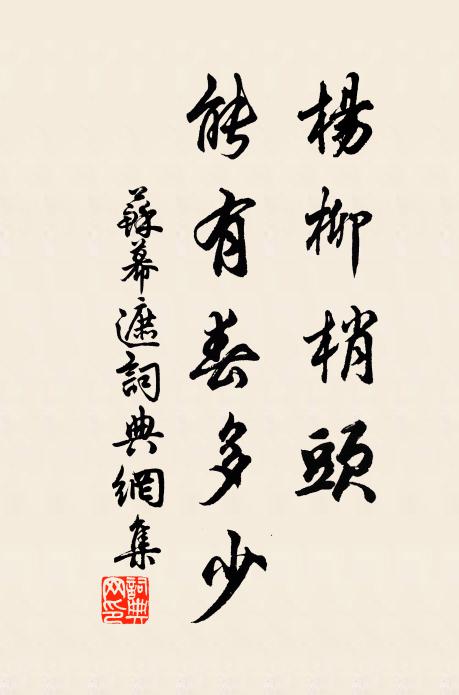 楊柳梢頭
能有春多少
蘇幕遮詞典網集
詞典
网印